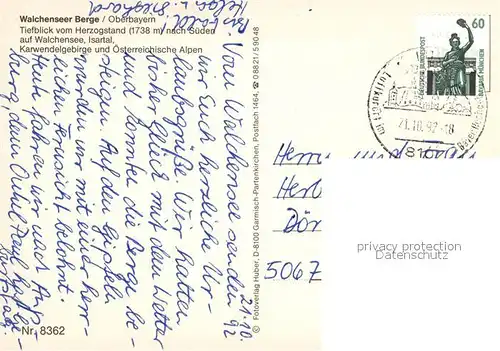 Walchenseer Berge / Oberbayern
Tiefblick vom Herzogstand (1738 m) nach Süden
auf Walchensee, Isartal,
Karwendelgebirge und Österreichische Alpen
21.10.
92
Vom Walchensee senden
wir Euch herzliche Ur-
laubsgrüße. Wir hatten
bisher Glück mit dem Wetter
und konnten die Berge be-
steigen. Auf den Gipfeln
wurden wir mit einer herr-
lichen Fernsicht belohnt.
Heute fahren wir nach
Onkel Paul
Bis bald!
Helga u.
Nr. 8362
© Fotoverlag Huber, D-8100 Garmisch-Partenkirchen, Postfach 1464, ☎ 08821/59048
60
DEUTSCHE BUNDESPOST
MÜNCHEN
Luftkurort
21.10.92-18
81
Herrn
Her
Dör
5067
privacy protection
Datenschutz